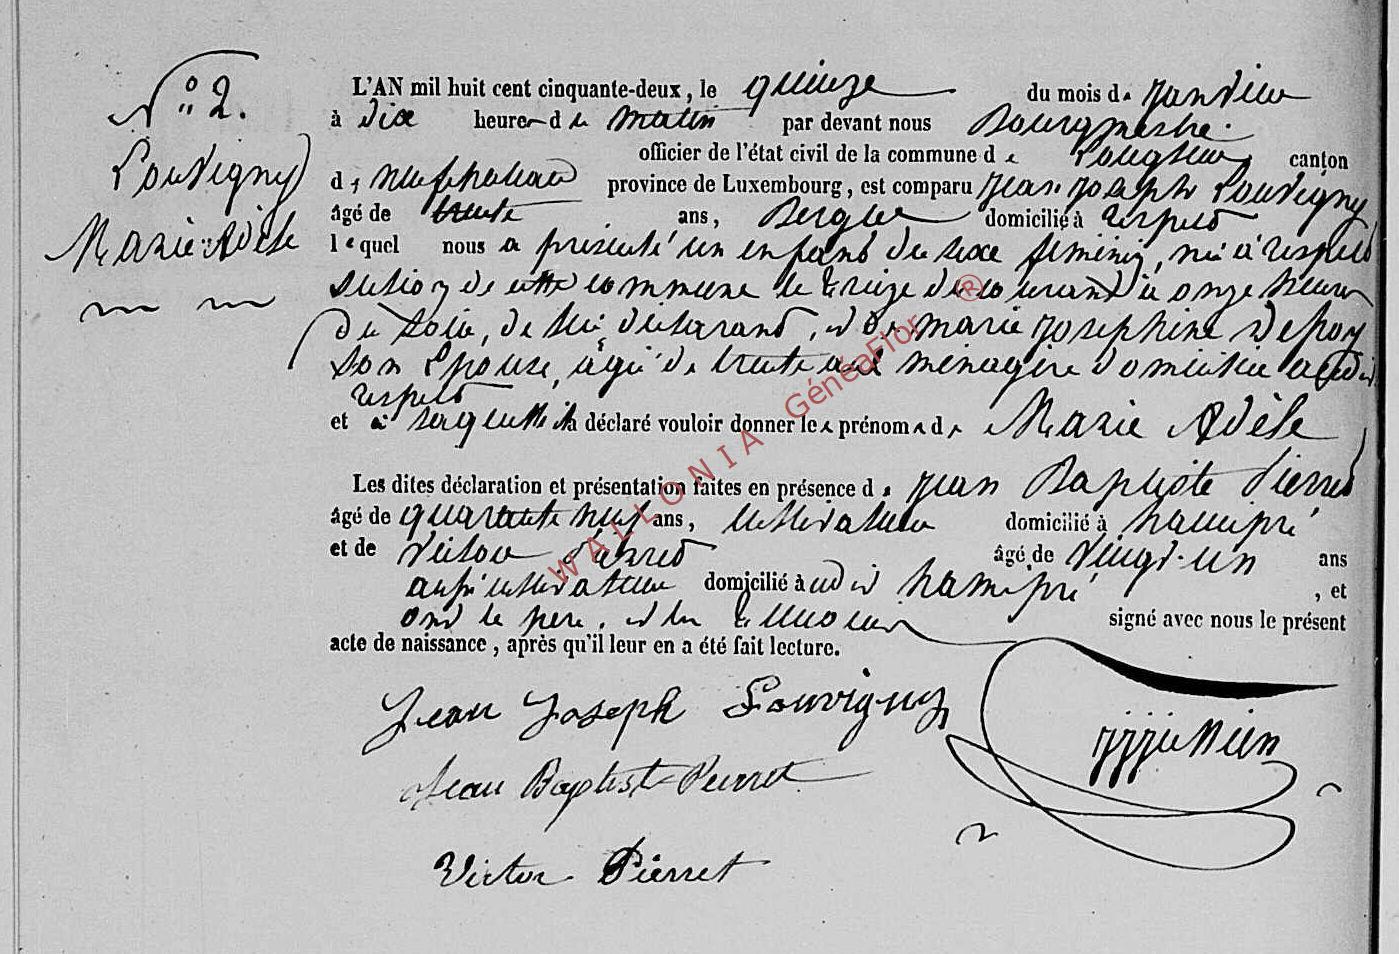 N° 2.
Louvigny
Marie Adèle
L'AN mil huit cent cinquante-deux, le quinze du mois de Janvier
à dix heures du matin par devant nous Bourgmestre
officier de l'état civil de la commune de Longlier, canton
de Neufchateau province de Luxembourg, est comparu Jean Joseph Louvigny
âgé de trente ans, Berger domicilié à respelt
lequel nous a présenté un enfant du sexe féminin, né à respelt
section de cette commune le treize du courant à onze heures
du soir, de lui déclarant, et de marie Josephine
son Epouse, âgé de trente ans ménagère domiciliée audit
respelt
et à déclaré vouloir donner les prénoms de Marie Adèle
Les dites déclaration et présentation faites en présence de Jean Baptiste Pierret
âgé de quarante neuf ans, cultivateur domicilié à hamipré
et de Victor Pierret âgé de vingt-un ans
aussi cultivateur domicilié à udit hamipré, et
ont le père, et les témoins signé avec nous le présent
acte de naissance, après qu'il leur en a été fait lecture.
Jean Joseph Louvigny
Jean Baptiste Pierret
Victor Pierret
WALLONIA GénéaFior ®